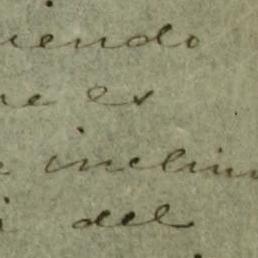 iendo
ue es
e inclin
i del